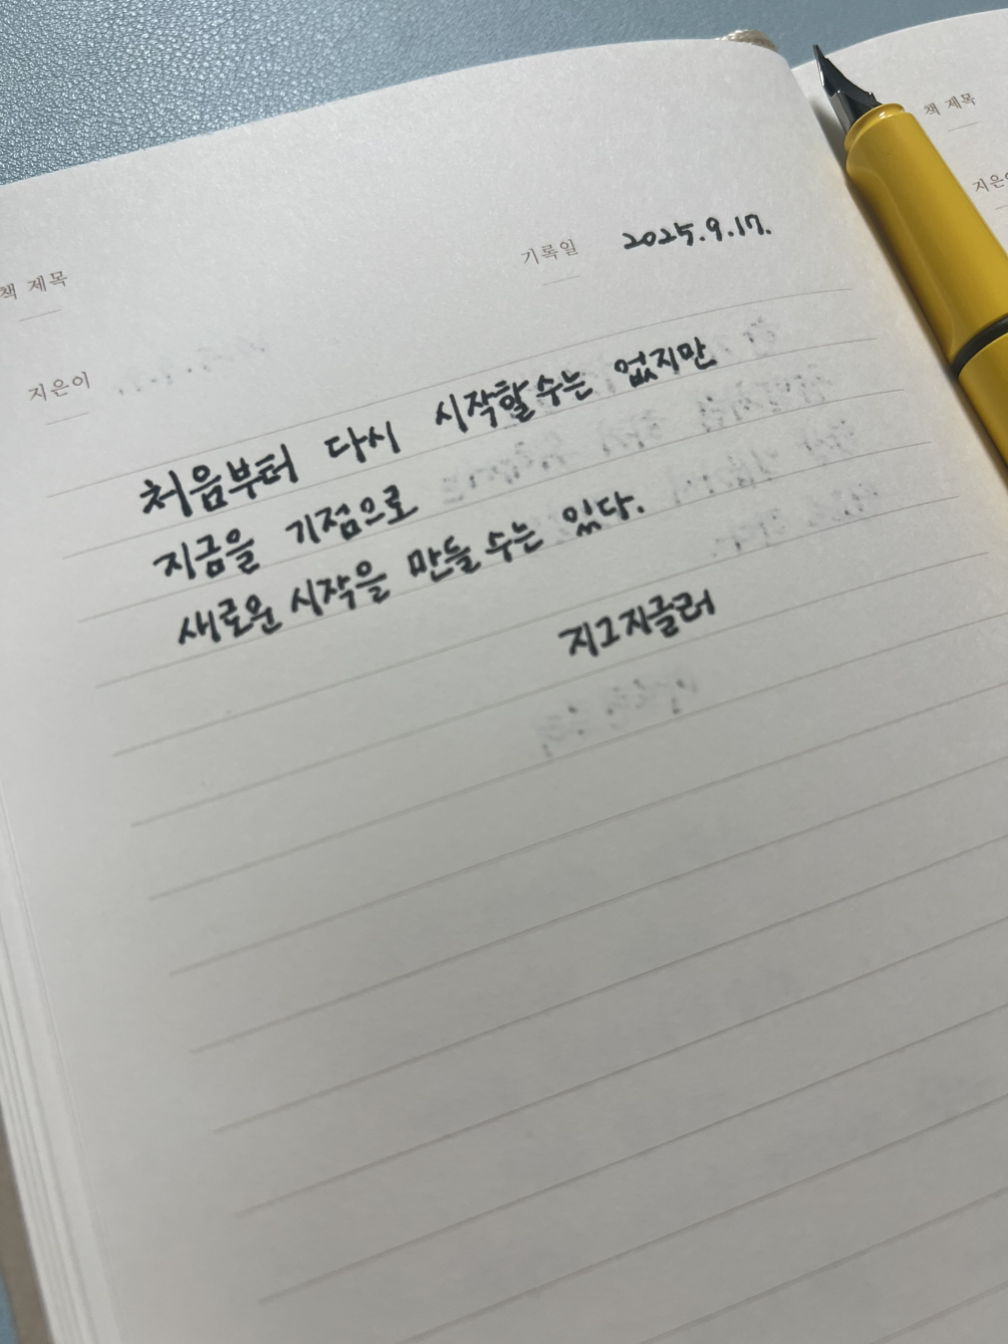 책 제목
기록일 2025.9.17.
지은이
처음부터 다시 시작할 수는 없지만
지금을 기점으로
새로운 시작을 만들 수는 있다.
지그지글러
책 제목
지은이